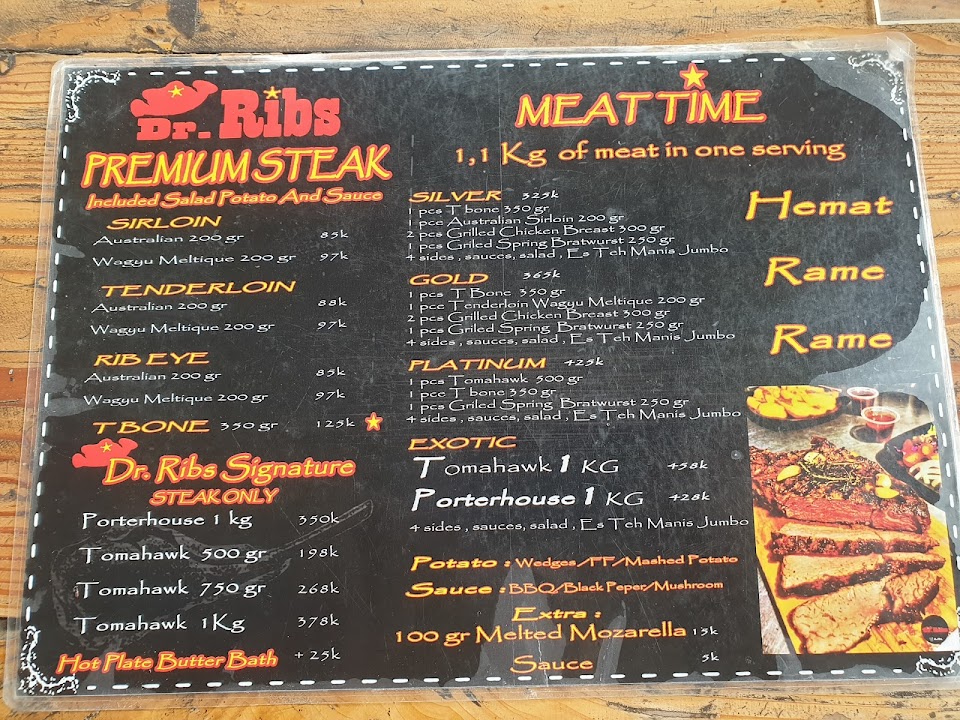 Dr. Ribs
PREMIUM STEAK
Included Salad Potato And Sauce
SIRLOIN
Australian 200 gr 85k
Wagyu Meltique 200 gr 97k
TENDERLOIN
Australian 200 gr 88k
Wagyu Meltique 200 gr 97k
RIB EYE
Australian 200 gr 85k
Wagyu Meltique 200 gr 97k
T BONE 350 gr 125k
Dr. Ribs Signature
STEAK ONLY
Porterhouse 1 kg 350k
Tomahawk 500 gr 198k
Tomahawk 750 gr 268k
Tomahawk 1Kg 378k
Hot Plate Butter Bath + 25k
MEAT TIME
1,1 Kg of meat in one serving
SILVER 325k
1 pcs T bone 350 gr
1 pce Australian Sirloin 200 gr
2 pcs Grilled Chicken Breast 300 gr
1 pcs Grilled Spring Bratwurst 250 gr
4 sides , sauces, salad , Es Teh Manis Jumbo
GOLD 365k
1 pcs T Bone 350 gr
1 pce Tenderloin Wagyu Meltique 200 gr
2 pcs Grilled Chicken Breast 300 gr
1 pcs Griled Spring Bratwurst 250 gr
4 sides , sauces, salad , Es Teh Manis Jumbo
PLATINUM 425k
1 pcs Tomahawk 500 gr
1 pce T bone 350 gr
1 pcs Griled Spring Bratwurst 250 gr
4 sides , sauces, salad , Es Teh Manis Jumbo
EXOTIC
Tomahawk 1 KG 458k
Porterhouse 1 KG 428k
4 sides , sauces, salad , Es Teh Manis Jumbo
Potato : Wedges /FF/Mashed Potato
Sauce : BBQ/Black Peper/Mushroom
Extra :
100 gr Melted Mozarella 15k
Sauce 5k
Hemat
Rame
Rame